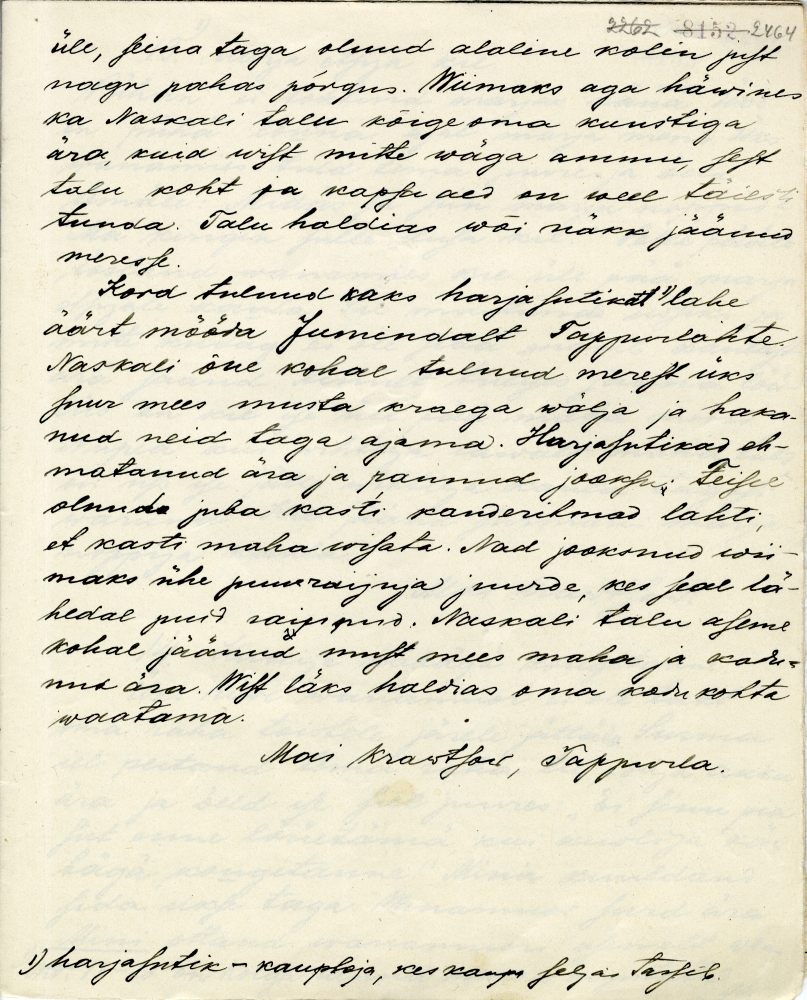 2262 8152 2464
üle, seina taga olnud alaline kolin just
nagu pahas põrgus. Wiimaks aga häwines
ka Naskali talu kõige oma kunstiga
ära, kuid wist mitte wäga ammu, sest
talu koht ja kapsu aed on weel täiesti
tunda. Talu haldias wõi näkk jäänud
meresse.
Kord tulnud kaks harjasutikat 1) lahe
äärt mööda Juminda​lt Tappurlahte.
Naskali õue kohal tulnud merest üks
suur mees musta kraega wälja ja haka-
nud neid taga ajama. Harjasutikad eh-
matanud ära ja pannud jooksu; Teisel
olnud juba kasti kanderihmad lahti,
et kasti maha wisata. Nad jooksnud wii-
maks ühe puuraijuja juurde, kes seal lä-
hedal puid raijunud. Naskali talu aseme
kohal jäänud must mees maha ja kadu-
nud ära. Wist läks haldias oma kodu kohta
waatama.
Mai Krawtsow, Tappurla.
1) harjasutik – kaupleja, kes kaupa seljas tassib.